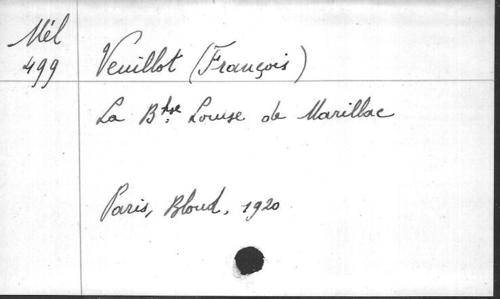 Mél
499
Veuillot (François)
La Btse Louise de Marillac
Paris, Bloud, 1920